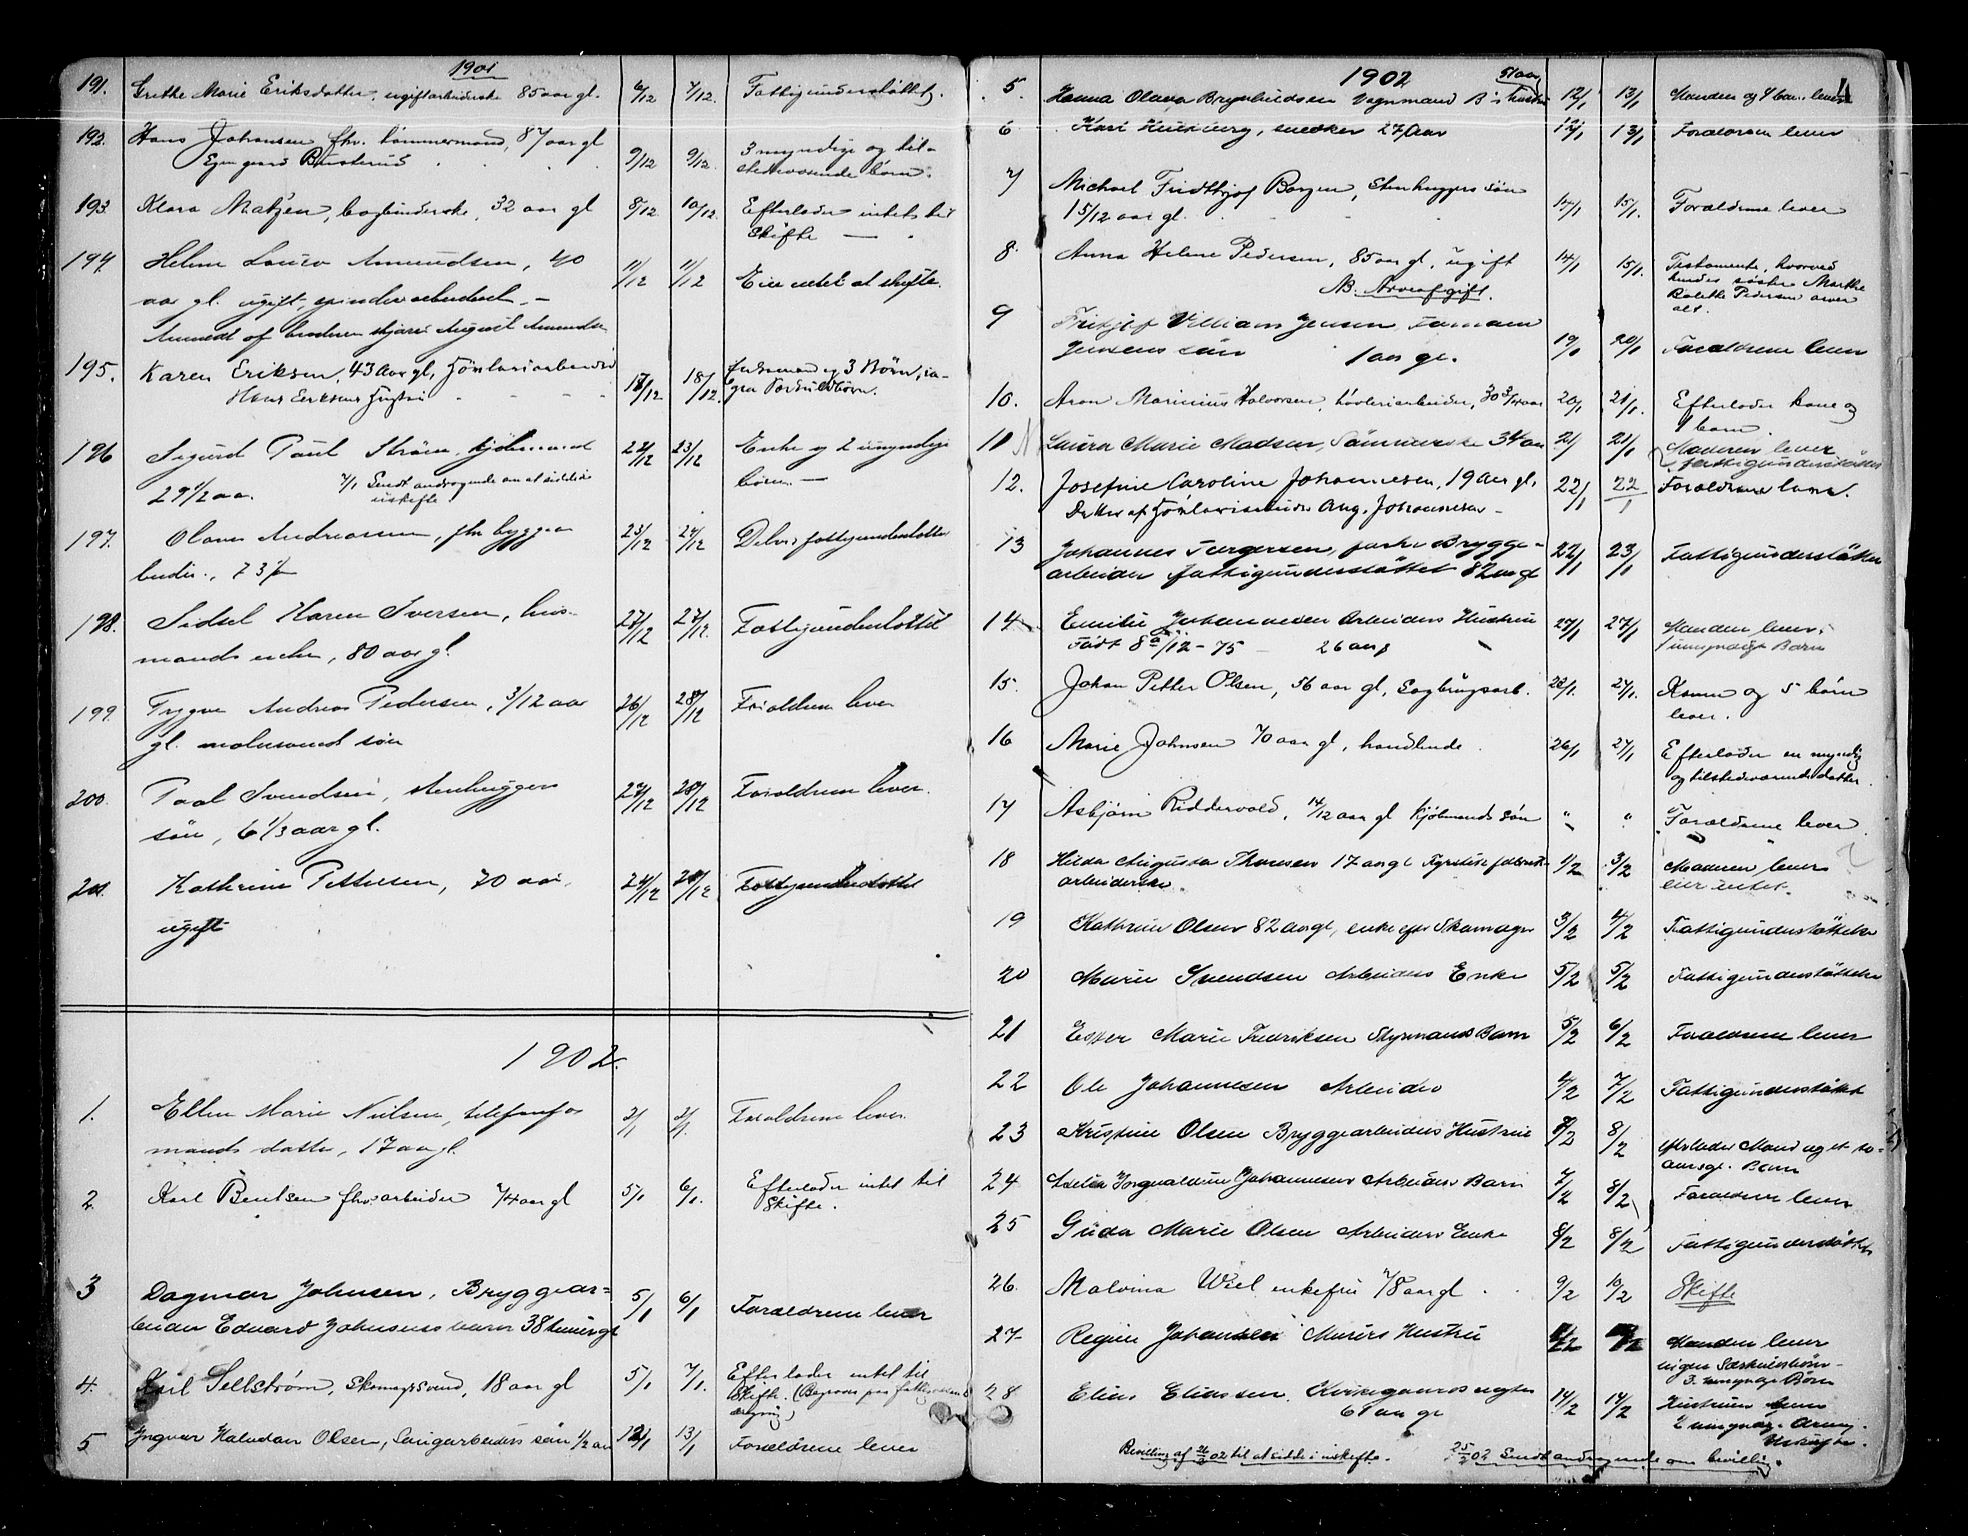 1901
191. Grethe Marie Eriksdatter, ugift arbeiderske 85 aar gl. 6/12 7/12. Fattigunderstøttet.
192. Hans Johansen fhv. tømmermand, 87 aar gl
Egen gaard 9/12 9/12. 3 myndige og til-
stedeværende børn.
193. Klara Matzen, bogbinderske, 32 aar gl 8/12 10/12. Efterlader intet til
Skifte —
194 Helene Amundsen, 40 11/12 11/12 Eier intet at skifte.
aar gl. ugift, —
Anmeldt af broderen August Amundsen
195. Karen Eriksen, 43 Aar gl, 17/12 18/12. og 3 Børn, in-
Hans Eriksens Hustru gen Særkuldbørn.
196 Sigurd Paul Strøm, kjøbmand 22/12 23/12 Enke og 2 umyndige
29 1/2 aar. 7/1 Sendt andragende om at sidde i børn. —
uskifte
197. Andreassen, fhv brygge- 23/12 24/12 Delvis fattigunderstøttet
73
198. Sidsel Karen Iversen, hus- 27/12 27/12. Fattigunderstøttet
mands enke, 80 aar gl.
199. Trygve Andreas Pedersen, 3/12 aar 26/12 28/12 Forældrene lever
gl. søn
200. Paal Svendsen, stenhuggers 27/12 28/12 Forældrene lever.
søn, 6 1/3 aar gl.
201. Kathrine Pettersen, 70 aar, 27/12 28/12 Fattigunderstøttet
ugift
1902.
1. Ellen Marie Nielsen, telefonfor- 2/1 2/1. Forældrene lever.
mands datter, 17 aar gl.
2. Karl Bentsen fhv. arbeider 74 aar gl 5/1 6/1. Efterlader intet til
Skifte.
3 Dagmar Johnsen, Bryggear- 5/1 6/1 Forældrene lever
beider Edvard Johnsens barn 38 timer gl
4. Karl Sellstrøm, Skomagersvend, 18 aar gl 5/1 7/1. Efterlader intet til
Skifte. (Begraves paa
5 Yngvar Halvdan Olsen, Saugarbeiders søn 1/2 aar 12/1 13/1 Forældrene lever
1902
5. Hanna Olava Brynhildsen Vognmand B's hustru 51 aar 12/1 13/1 Manden og 4 barn lever
6 Karl snedker 27 Aar 12/1 13/1 Forældrene lever
7 Michael Fridthjof Borgen, Stenhuggers søn
1 5/12 aar gl. 14/1 15/1. Forældrene lever
8. Anna Helene Pedersen, 85 aar gl, ugift 14/1 15/1. Testamente, hvorved
NB. Arveafgift. hendes søster Marthe
Bolethe Pedersen arver
alt.
9 Fritjof William Jensen, Formand
Jensens søn 1 aar gl. 19/1 20/1 Forældrene lever
10. Aron Marinius Halvorsen, høvleriarbeider, 30 3/4 aar 20/1 21/1. Efterlader kone og
barn.
11 Laura Marie Madsen, Sømmerske 34 aar 21/1 Moderen lever
fattigunderstøttet
12. Josefine Caroline Johannesen, 19 aar gl. 22/1 22/1 Forældrene lever.
Datter af Aug. Johannesen —
13 Johannes Torgersen, forhv. Brygge- 22/1 23/1 Fattigunderstøttet
arbeider fattigunderstøttet 82 aar gl
14. Emilie Johannesen Arbeiders Hustru 27/1 27/1 Manden lever.
Født 8de/12 - 75 — 26 aar 1 umyndigt Barn
15. Johan Petter Olsen, 56 aar gl, Sagbrugsarb. 26/1. 27/1. Konen og 5 børn
lever.
16 Marie Johnsen 70 aar gl, handlende. 26/1 27/1 Efterlader en myndig
og tilstedeværende datter.
17 Asbjørn Riddervold, 14/12 aar gl kjøbmands søn " " Forældrene lever.
18 Hilda Augusta Thoresen 17 aar gl 1/2 3/2 Moderen lever
arbeiderske. eier intet.
19 Kathrine Olsen 82 aar gl, enke efter Skomager 3/2 4/2 Fattigunderstøttelse
20 Marie Svendsen Arbeiders Enke 5/2 5/2 Fattigunderstøttelse
21 Ester Marie Fredriksen Styrmands Barn 5/2 6/2 Forældrene lever
22 Ole Johannesen Arbeider 4/2 7/2 Fattigunderstøttet
23 Kristine Olsen Bryggearbeiders Hustru 8/2 8/2 efterlader Mand og et
Barn
24 Johannesen Arbeiders Barn 7/2 8/2 Forældrene lever
25 Gurine Marie Olsen Arbeiders Enke 8/2 8/2 Fattigunderstøttet
26. Malvina Wiel enkefru 78 aar gl 9/2 10/2 Skifte
27 Regine Johansen Murers Hustru Manden lever
ingen Særkuldsbørn
3. umyndige Børn
28 Elias Eliassen 14/2 14/2 Hustruen lever
61 aar gl 2 umyndige
Uskifte.
Bevilling af 02 til at sidde i uskifte. 25/2 02 Sendt andragende om bevilling.